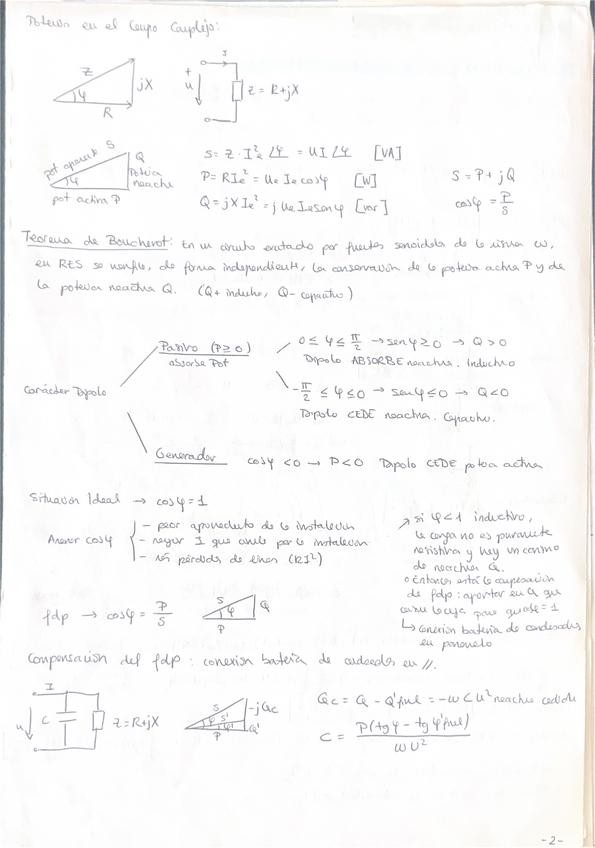 Potencia en el Campo Complejo:
Z
jX
φ
R
I
+
u
Z = R+jX
pot aparente S
Q
Potencia
reactiva
φ
pot activa P
S = Z · I²e ∠φ = U I ∠φ [VA]
P = R Ie² = Ue Ie cosφ [W]
Q = jX Ie² = j Ue Ie senφ [var]
S = P + jQ
cosφ = P/S
Teorema de Boucherot: En un circuito excitado por fuentes senoidales de la misma ω,
en RES se verifica, de forma independiente, la conservación de la potencia activa P y de
la potencia reactiva Q. (Q+ inductivo, Q- capacitivo)
Carácter Dipolo
Pasivo (P ≥ 0)
absorbe Pot
0 ≤ φ ≤ π/2 → senφ ≥ 0 → Q > 0
Dipolo ABSORBE reactiva. Inductivo
-π/2 ≤ φ ≤ 0 → senφ ≤ 0 → Q < 0
Dipolo CEDE reactiva. Capacitivo.
Generador cosφ < 0 → P < 0 Dipolo CEDE potencia activa
Situación Ideal → cosφ = 1
Amenor cosφ
- peor aprovechamiento de la instalación
- mayor I que circula por la instalación
- más pérdidas de línea (RI²)
si φ < 1 inductivo,
la carga no es puramente
resistiva y hay un consumo
de reactiva Q.
Entonces está la compensación
de fdp: aportar en Q que
consume la carga para que sea = 1
↳ conexión batería de condensadores
en paralelo
fdp → cosφ = P/S
S
φ
Q
P
Compensación del fdp: conexión batería de condensadores en //.
I
u
C
Z = R+jX
S
S'
φ
φ'
P
-jQc
Q'
Qc = Q - Q'final = -ω C U² reactiva cedida
C = P(tgφ - tgφ'final) / ωU²
-2-